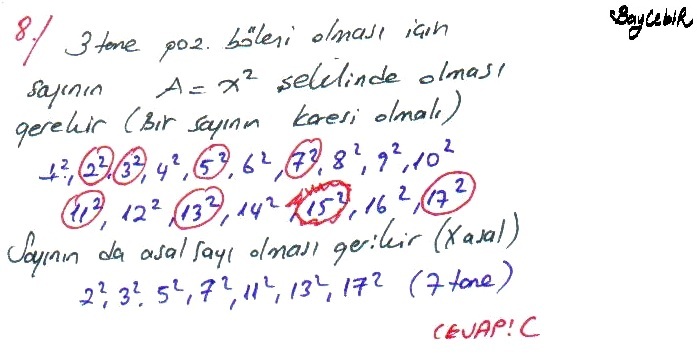 BayCebiR
8./ 3 tane poz. böleni olması için
sayının A = x² şeklinde olması
gerekir (Bir sayının karesi olmalı)
1², 2², 3², 4², 5², 6², 7², 8², 9², 10²
11², 12², 13², 14², 15², 16², 17²
Sayının da asal sayı olması gerekir (x asal)
2², 3², 5², 7², 11², 13², 17² (7 tane)
CEVAP: C